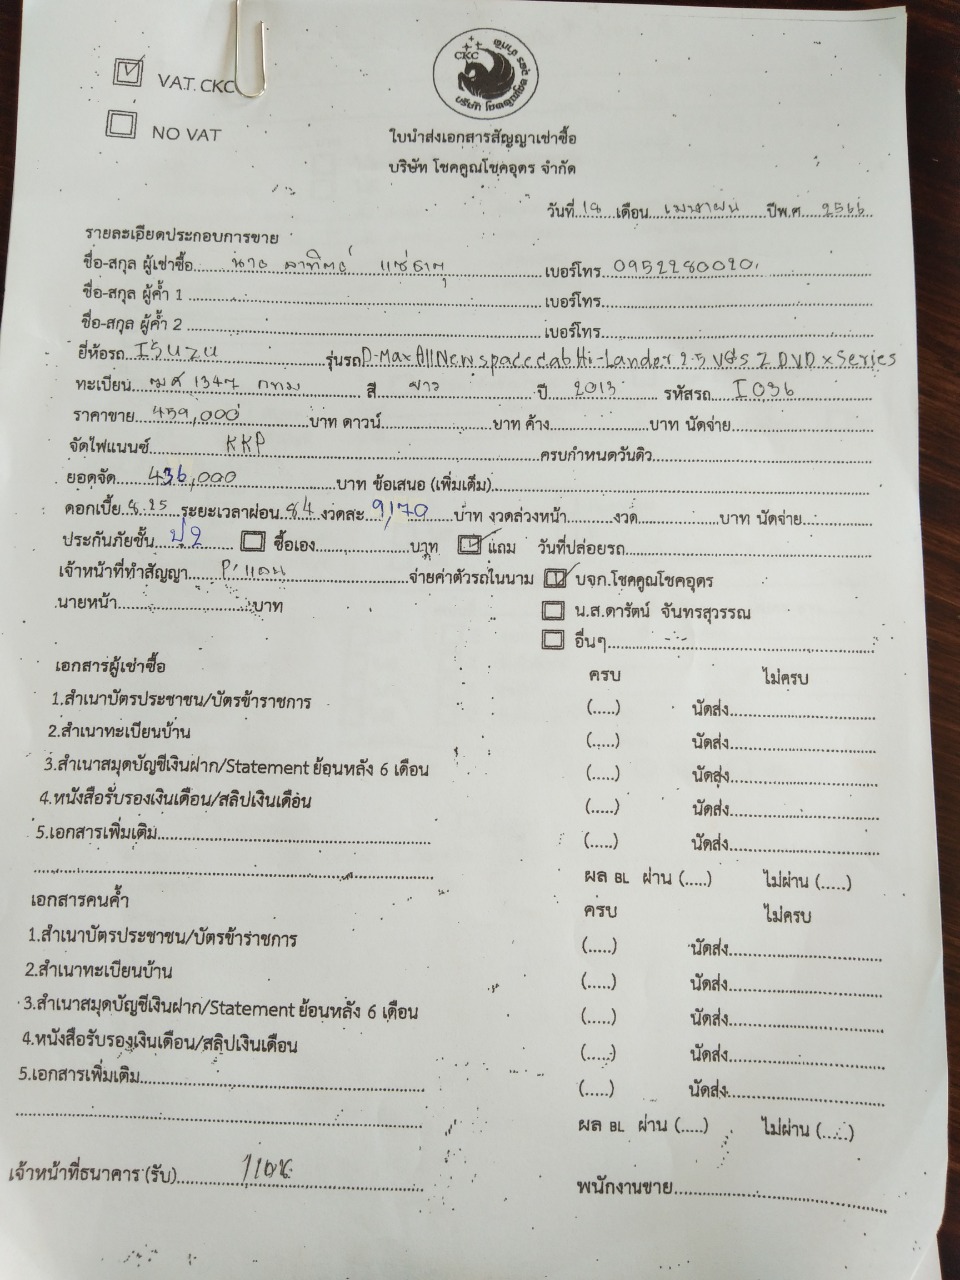 VAT. CKC
NO VAT
CKC
ใบนำส่งเอกสารสัญญาเช่าซื้อ
บริษัท โชคคูณโชคอุดร จำกัด
วันที่ 18 เดือน เมษายน ปีพ.ศ. 2566
รายละเอียดประกอบการขาย
ชื่อ-สกุล ผู้เช่าซื้อ นาง อาทิตย์ เบอร์โทร 0952280020
ชื่อ-สกุล ผู้ค้ำ 1 เบอร์โทร
ชื่อ-สกุล ผู้ค้ำ 2 เบอร์โทร
ยี่ห้อรถ ISUZU รุ่นรถ D-Max All New spacecab Hi-Lander 2.5 VGS Z DVD x Series
ทะเบียน 1347 กทม สี ขาว ปี 2013 รหัสรถ I036
ราคาขาย 459,000 บาท ดาวน์ บาท ค้าง บาท นัดจ่าย
จัดไฟแนนซ์ KKP ครบกำหนดวันดิว
ยอดจัด 436,000 บาท ข้อเสนอ (เพิ่มเติม)
ดอกเบี้ย 8.25 ระยะเวลาผ่อน 84 งวดละ 9,170 บาท งวดล่วงหน้า งวด บาท นัดจ่าย
ประกันภัยชั้น ป2 ซื้อเอง บาท แถม วันที่ปล่อยรถ
เจ้าหน้าที่ทำสัญญา P'แอน จ่ายค่าตัวรถในนาม บจก.โชคคูณโชคอุดร
นายหน้า บาท น.ส.ดารัตน์ จันทรสุวรรณ
อื่นๆ
เอกสารผู้เช่าซื้อ ครบ ไม่ครบ
1.สำเนาบัตรประชาชน/บัตรข้าราชการ (.....) นัดส่ง
2.สำเนาทะเบียนบ้าน (.....) นัดส่ง
3.สำเนาสมุดบัญชีเงินฝาก/Statement ย้อนหลัง 6 เดือน (.....) นัดส่ง
4.หนังสือรับรองเงินเดือน/สลิปเงินเดือน (.....) นัดส่ง
5.เอกสารเพิ่มเติม (.....) นัดส่ง
ผล BL ผ่าน (.....) ไม่ผ่าน (.....)
เอกสารคนค้ำ ครบ ไม่ครบ
1.สำเนาบัตรประชาชน/บัตรข้าราชการ (.....) นัดส่ง
2.สำเนาทะเบียนบ้าน (.....) นัดส่ง
3.สำเนาสมุดบัญชีเงินฝาก/Statement ย้อนหลัง 6 เดือน (.....) นัดส่ง
4.หนังสือรับรองเงินเดือน/สลิปเงินเดือน (.....) นัดส่ง
5.เอกสารเพิ่มเติม (.....) นัดส่ง
ผล BL ผ่าน (.....) ไม่ผ่าน (.....)
เจ้าหน้าที่ธนาคาร (รับ) พนักงานขาย